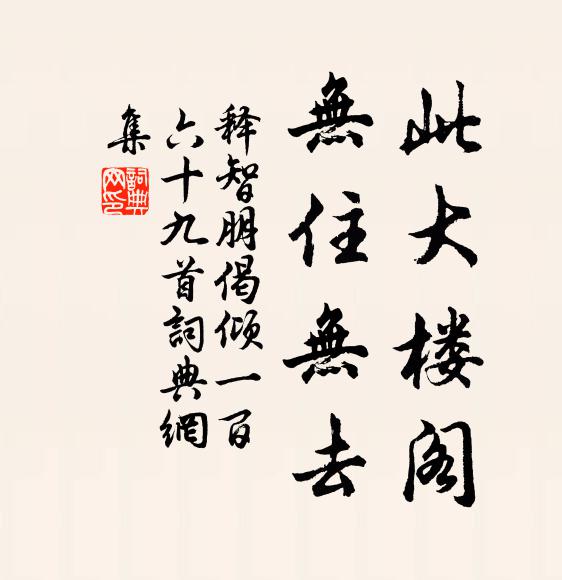 此大楼阁
無住無去
释智朋偈倾一百
六十九首詞典網
集
詞典網印